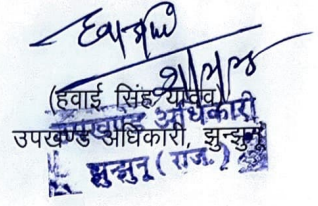 (हवाई सिंह यादव)
उपखण्ड अधिकारी, झुन्झुनू
उपखण्ड अधिकारी
झुन्झुनू (राज.)